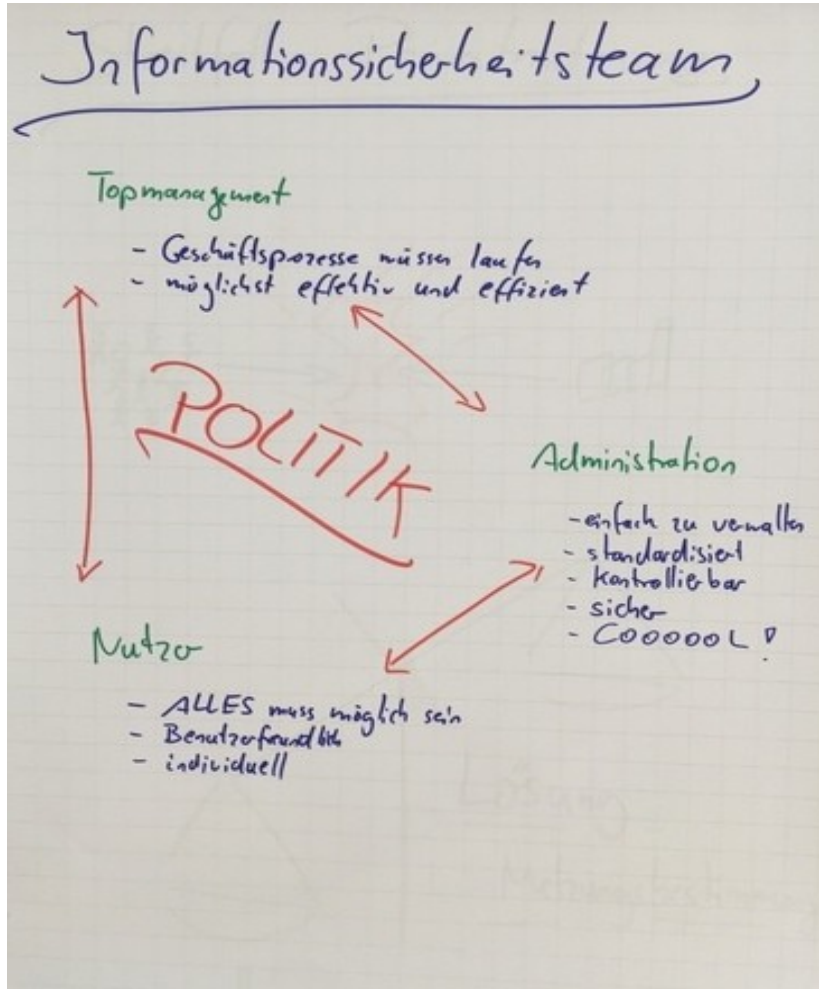 Informationssicherheitsteam
Topmanagement
- Geschäftsprozesse müssen laufen
- möglichst effektiv und effizient
POLITIK
Administration
- einfach zu verwalten
- standardisiert
- kontrollierbar
- sicher
- COOOOOL!
Nutzer
- ALLES muss möglich sein
- Benutzerfreundlich
- individuell